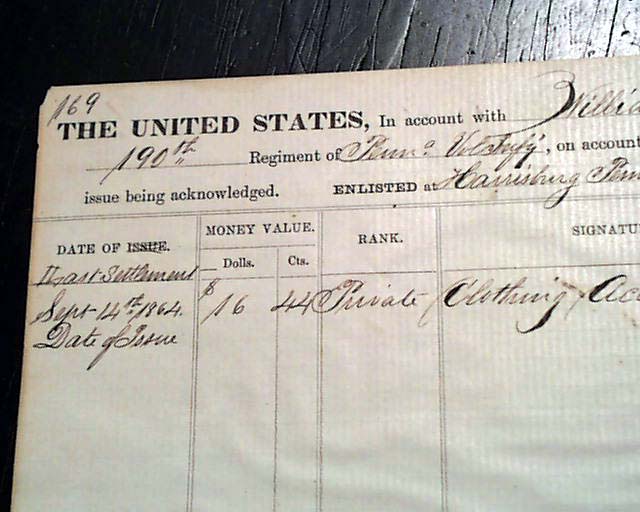 169
THE UNITED STATES, In account with Willia
190th Regiment of Penna Vol Infy, on account
issue being acknowledged. ENLISTED at Harrisburg Pen
DATE OF ISSUE. MONEY VALUE. RANK. SIGNATU
Dolls. Cts.
Last Settlement
Sept 14th 1864. $16 44 Private (Clothing Ac
Date of Issue